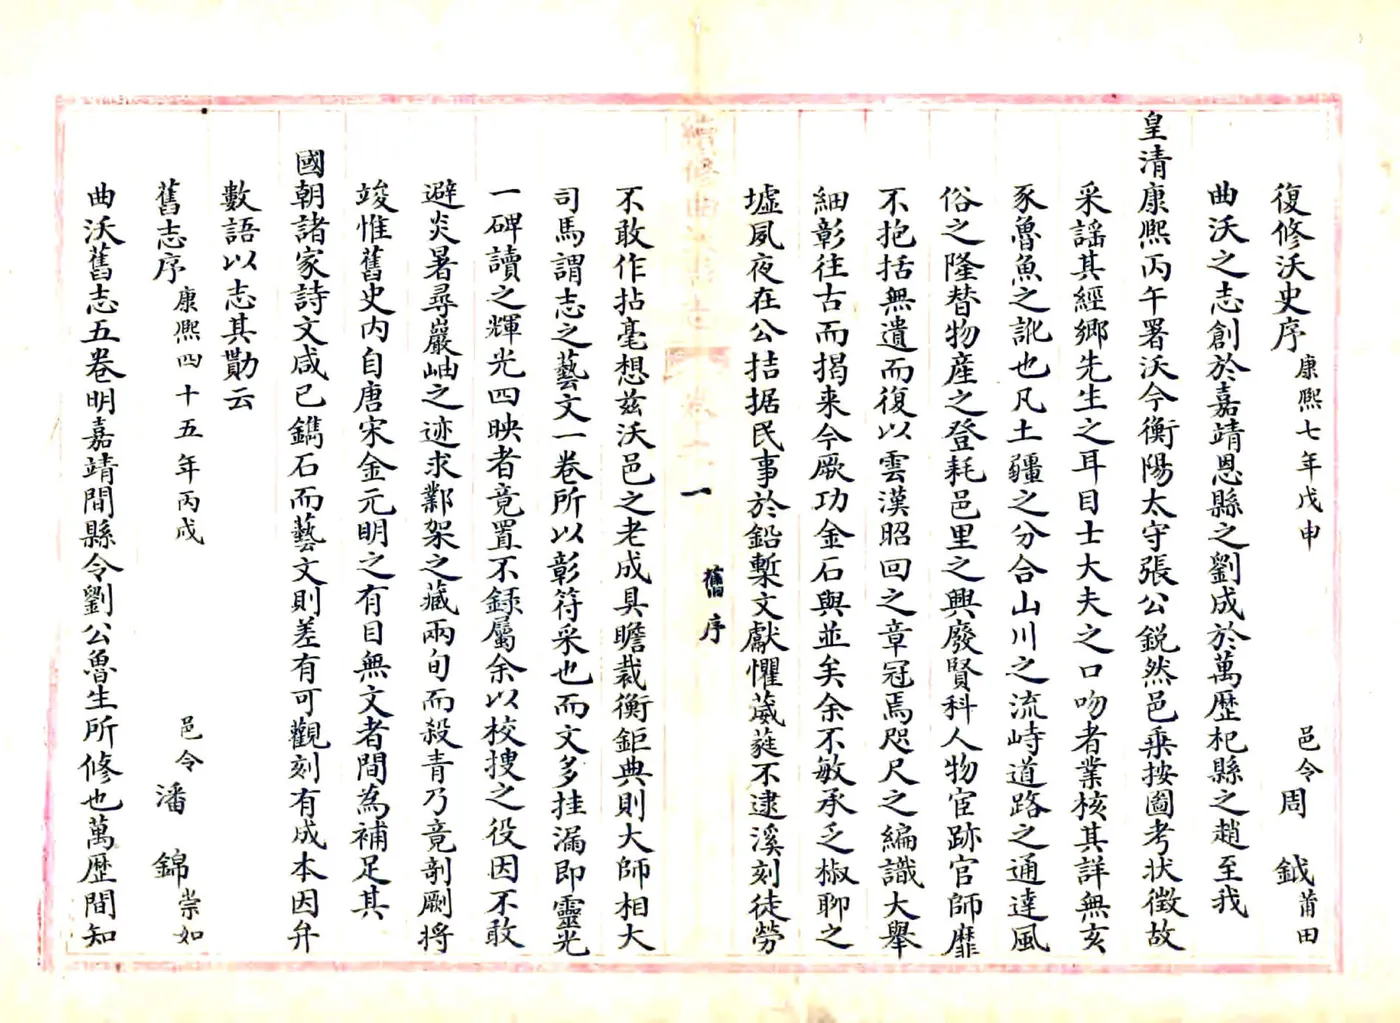 復修沃史序 康熙七年戊申 邑令周 鉞莆田
曲沃之志創於嘉靖恩縣之劉成於萬歷杞縣之趙至我
皇清康熙丙午署沃令衡陽太守張公銳然邑乗按圖考状徴故
采謡其經鄉先生之耳目士大夫之口吻者業核其詳無亥
豕魯魚之訛也凡土疆之分合山川之流峙道路之通達風
俗之隆替物産之登耗邑里之興廢賢科人物宦跡官師靡
不抱括無遺而復以雲漢昭回之章冠焉咫尺之編識大舉
細彰往古而揭来今厥功金石與並矣余不敏承乏椒聊之
墟夙夜在公拮据民事於鉛槧文獻懼葳蕤不逮溪刻徒勞
續修曲沃縣志
卷之
一
舊序
不敢作拈毫想兹沃邑之老成具瞻裁衡鉅典則大師相大
司馬謂志之藝文一卷所以彰符采也而文多挂漏即靈光
一碑讀之輝光四映者竟置不録屬余以校捜之役因不敢
避炎暑尋巖岫之迹求鄴架之藏兩旬而殺青乃竟剞劂將
竣惟舊史内自唐宋金元明之有目無文者間為補足其
國朝諸家詩文咸已鐫石而藝文則差有可觀刻有成本因弁
數語以志其勩云
舊志序 康熙四十五年丙戌 邑令潘 錦崇如
曲沃舊志五卷明嘉靖間縣令劉公魯生所修也萬歷間知